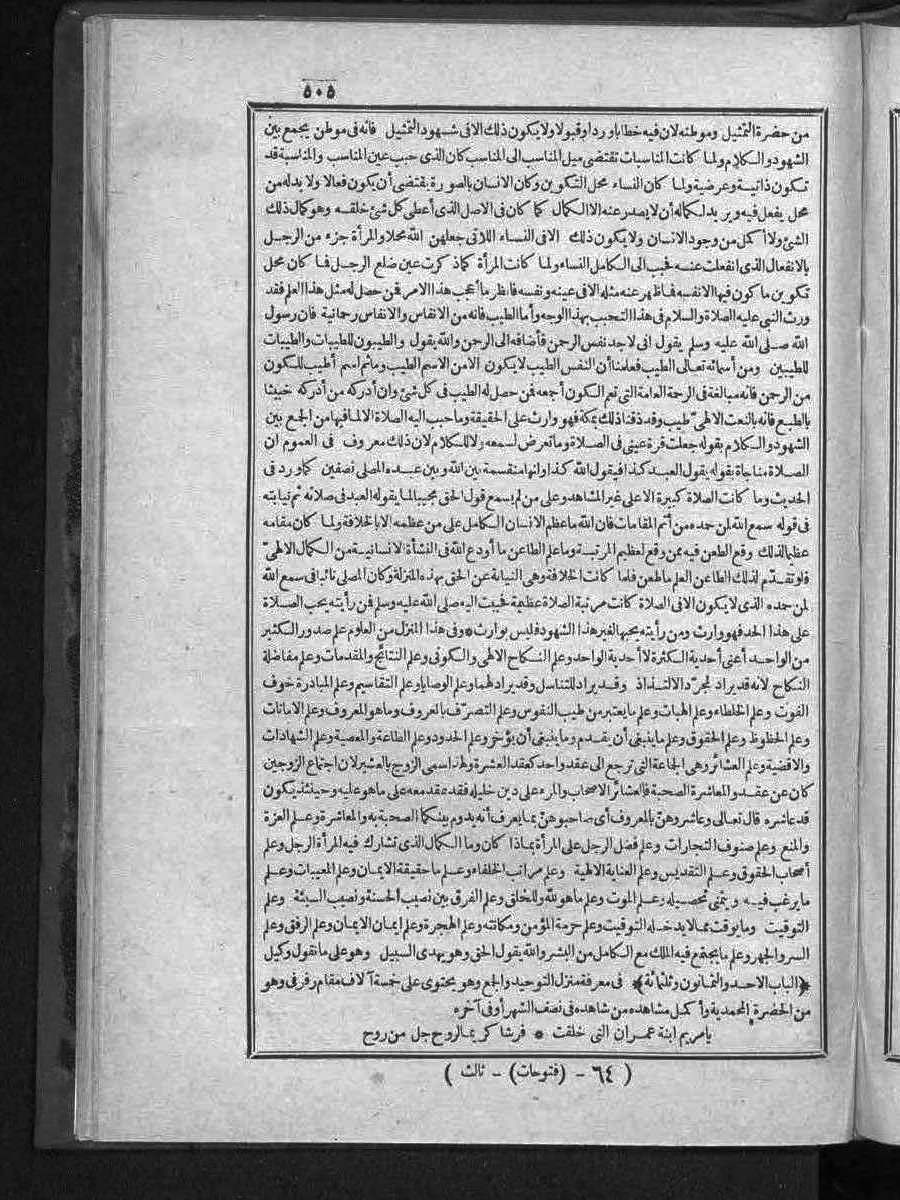 ٥٠٥
من حضرة التمثيل وموطنه لان فيه خطابا وردا وقبولا ولا يكون ذلك الا فى شهود التمثيل فانه فى موطن يجمع بين
الشهود والكلام ولما كانت المناسبات تقتضى ميل المناسب الى المناسب كان الذى حبب عين المناسب والمناسبة قد
تكون ذاتية وعرضية ولما كان النساء محل التكوين وكان الانسان بالصورة يقتضى أن يكون فعالا ولا بد له من
محل يفعل فيه ويريد لكماله أن لا يصدر عنه الا الكمال كما كان فى الاصل الذى أعطى كل شئ خلقه وهو كمال ذلك
الشئ ولا أكمل من وجود الانسان ولا يكون ذلك الا فى النساء اللاتى جعلهن الله محلا والمرأة جزء من الرجل
بالانفعال الذى انفعلت عنه فحبب الى الكامل النساء ولما كانت المرأة كما ذكرت عين ضلع الرجل فما كان محل
تكوين ما كون فيها الا نفسه فما ظهر عنه مثله الا فى عينه ونفسه فانظر ما أعجب هذا الامر فمن حصل له مثل هذا العلم فقد
ورث النبى عليه الصلاة والسلام فى هذا التحبب بهذا الوجه وأما الطيب فانه من الانفاس والانفاس رحمانية فان رسول
الله صلى الله عليه وسلم يقول انى لاجد نفس الرحمن فأضافه الى الرحمن والله يقول والطيبون للطيبات والطيبات
للطيبين ومن أسمائه تعالى الطيب فعلمنا أن النفس الطيب لا يكون الا من الاسم الطيب وما ثم اسم أطيب للكون
من الرحمن فانه مبالغة فى الرحمة العامة التى تعم الكون أجمعه فمن حصل له الطيب فى كل شئ وان أدركه من أدركه خبيثا
بالطبع فانه بالنعت الالهىّ طيب وقد ذقنا ذلك بمكة فهو وارث على الحقيقة وما حبب اليه الصلاة الا لما فيها من الجمع بين
الشهود والكلام بقوله جعلت قرة عينى فى الصلاة وما تعرض لسمعه ولا للكلام لان ذلك معروف فى العموم ان
الصلاة مناجاة بقوله يقول العبد كذا فيقول الله كذا وانها منقسمة بين الله وبين عبده المصلى نصفين كما ورد فى
الحديث وما كانت الصلاة كبيرة الا على غير المشاهد وعلى من لم يسمع قول الحق مجيبا لما يقوله العبد فى صلاته ثم نيابته
فى قوله سمع الله لمن حمده من أتم المقامات فان الله ما عظم الانسان الكامل على من عظمه الا بالخلافة ولما كان مقامه
عظيما لذلك وقع الطعن فيه ممن وقع لعظيم المرتبة وما علم الطاعن ما أودع الله فى النشأة الانسانية من الكمال الالهىّ
فلو تقدّم لذلك الطاعن العلم ما طعن فلما كانت الخلافة وهى النيابة عن الحق بهذه المنزلة وكان المصلى نائبا فى سمع الله
لمن حمده الذى لا يكون الا فى الصلاة كانت مرتبة الصلاة عظيمة فحببت اليه صلى الله عليه وسلم فمن رأيته يحب الصلاة
على هذا الحد فهو وارث ومن رأيته يحبها لغير هذا الشهود فليس بوارث * وفى هذا المنزل من العلوم علم صدور الكثير
من الواحد أعنى أحدية الكثرة لا أحدية الواحد وعلم النكاح الالهى والكونى وعلم النتائج والمقدمات وعلم مفاضلة
النكاح لانه قد يراد لمجرّد الالتذاذ وقد يراد للتناسل وقد يراد لهما وعلم الوصايا وعلم التقاسيم وعلم المبادرة خوف
الفوت وعلم الخلطاء وعلم الهبات وعلم ما يعتبر من طيب النفوس وعلم التصرّف بالمعروف وما هو المعروف وعلم الامانات
وعلم الحظوظ وعلم الحقوق وعلم ما ينبغى أن يقدم وما ينبغى أن يؤخر وعلم الحدود وعلم الطاعة والمعصية وعلم الشهادات
والاقضية وعلم العشائر وهى الجماعة التى ترجع الى عقد واحد كعقد العشرة ولهذا سمى الزوج بالعشير لان اجتماع الزوجين
كان عن عقد والمعاشرة الصحبة فالعشائر الاصحاب والمرء على دين خليله فقد عقد معه على ما هو عليه وحينئذ يكون
قد عاشره قال تعالى وعاشروهنّ بالمعروف أى صاحبوهنّ بما يعرف أنه يدوم بينكما الصحبة به والمعاشرة وعلم العزة
والمنع وعلم صنوف التجارات وعلم فضل الرجل على المرأة بماذا كان وما الكمال الذى تشارك فيه المرأة الرجل وعلم
أصحاب الحقوق وعلم التقديس وعلم العناية الالهية وعلم مراتب الخلفاء وعلم ما حقيقة الايمان وعلم المعيبات وعلم
ما يرغب فيه ويتمنى تحصيله وعلم الموت وعلم ما هو لله وللخلق وعلم الفرق بين نصيب الحسنة ونصيب السيئة وعلم
التوقيت وما يوقت مما لا يدخله التوقيت وعلم حرمة المؤمن ومكانته وعلم الهجرة وعلم ايمان الايمان وعلم الرفق وعلم
السر والجهر وعلم ما يجتمع فيه الملك مع الكامل من البشر والله يقول الحق وهو يهدى السبيل وهو على ما نقول وكيل
﴿الباب الاحد والثمانون وثلثمائة﴾ فى معرفة منزل التوحيد والجمع وهو يحتوى على خمسة آلاف مقام رفرفى وهو
من الحضرة المحمدية وأكمل مشاهده من شاهده فى نصف الشهر أو فى آخره
يا مريم ابنة عمران التى خلقت * فرشا كريما لروح جل من روح
( ٦٤ - (فتوحات) - ثالث )